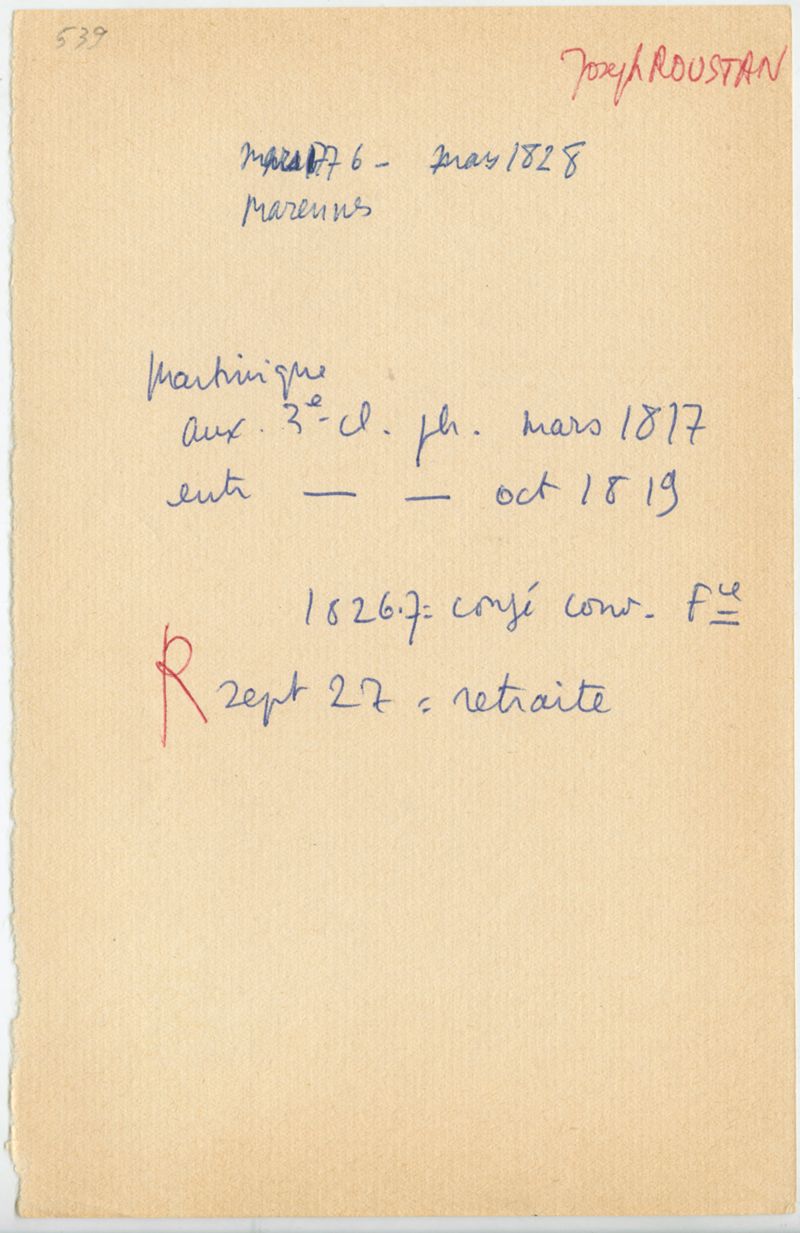 539
Joseph ROUSTAN
mars 1776 - mars 1828
Marennes
Martinique
aux. 3e cl. ph. mars 1817
entr — — oct 1819
1826.7 = congé conv. Fce
R sept 27 = retraite